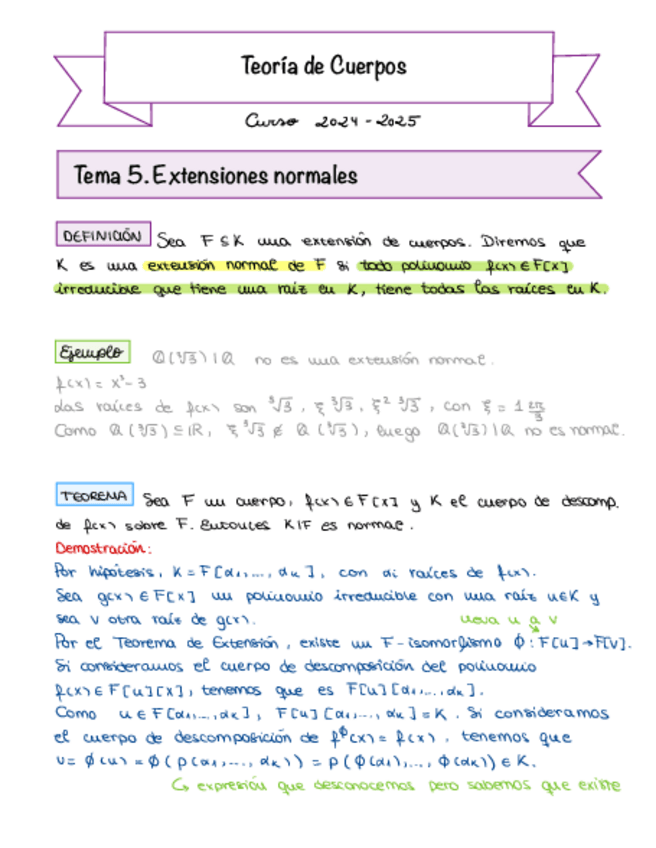 Teoría de Cuerpos
Curso 2024-2025
Tema 5. Extensiones normales
DEFINICIÓN Sea F ≤ K una extensión de cuerpos. Diremos que
K es una extensión normal de F si todo polinomio f(x) ∈ F[x]
irreducible que tiene una raíz en K, tiene todas las raíces en K.
Ejemplo ℚ(∛3)|ℚ no es una extensión normal.
f(x) = x³-3
Las raíces de f(x) son ∛3, ξ ∛3, ξ² ∛3, con ξ = 1 2π/3
Como ℚ(∛3) ⊆ ℝ, ξ ∛3 ∉ ℚ(∛3), luego ℚ(∛3)|ℚ no es normal.
TEOREMA Sea F un cuerpo, f(x) ∈ F[x] y K el cuerpo de descomp.
de f(x) sobre F. Entonces K|F es normal.
Demostración:
Por hipótesis, K = F[α1,..., αk], con αi raíces de f(x).
Sea g(x) ∈ F[x] un polinomio irreducible con una raíz u∈K y
sea v otra raíz de g(x).
lleva u a v
Por el Teorema de Extensión, existe un F-isomorfismo ϕ: F[u]→F[v].
Si consideramos el cuerpo de descomposición del polinomio
f(x) ∈ F[u][x], tenemos que es F[u][α1,..., αk].
Como u ∈ F[α1,..., αk], F[u][α1,..., αk] = K. Si consideramos
el cuerpo de descomposición de f^ϕ(x) = f(x), tenemos que
v = ϕ(u) = ϕ(p(α1,..., αk)) = p(ϕ(α1),..., ϕ(αk)) ∈ K.
↳ expresión que desconocemos pero sabemos que existe